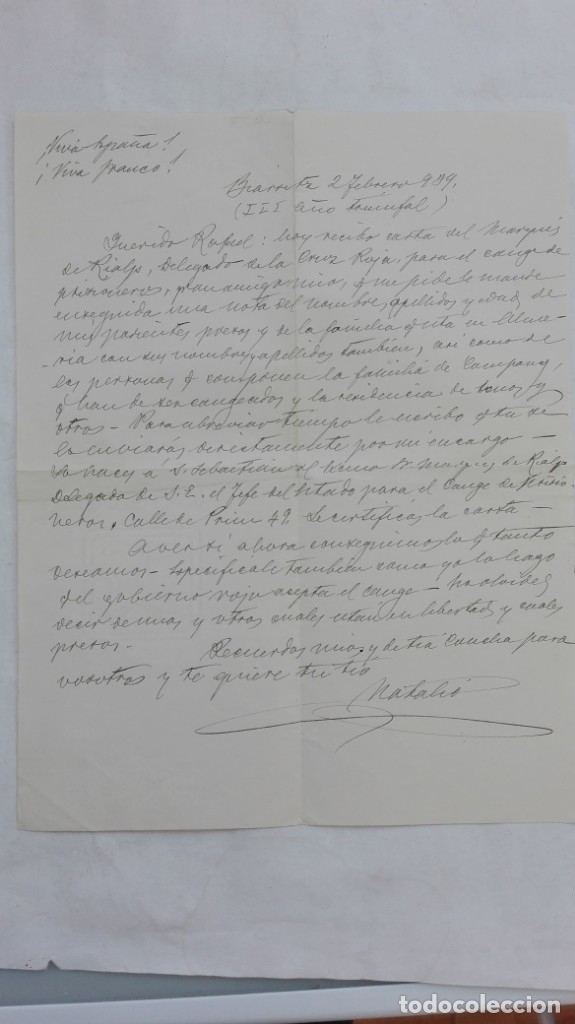 ¡Viva España!
¡Viva Franco!
Biarritz 2 Febrero 939.
(III año triunfal)
Querido Rafael: hoy recibo carta del Marqués
de Rialp, Delegado de la Cruz Roja, para el cange de
prisioneros, gran amigo mio, y me pide le mande
enseguida una nota del nombre, apellidos y edad de
mis parientes presos y de la familia q esta en Alme-
-ria con sus nombres y apellidos tambien, asi como de
las personas q componen la familia de Companys,
q han de ser cangeados y la residencia de unos y
otros - Para abreviar tiempo le escribo q tu se
lo enviarás directamente por mi encargo -
Lo haces a S. Sebastián al Sr. Marqués de Rialp
Delegado de S.E. el Jefe del Estado para el Cange de Prisio-
neros, Calle de Prim 49. Le certificas la carta -
A ver si ahora conseguimos lo q tanto
deseamos - Especificale tambien como yo lo hago
del gobierno rojo acepta el cange - No olvides
decir de unos y otros cuales estan en libertad y cuales
presos -
Recuerdos mios y de tia Concha para
vosotros y te quiere tu tio
Natalio
todocoleccion
todocoleccion.net